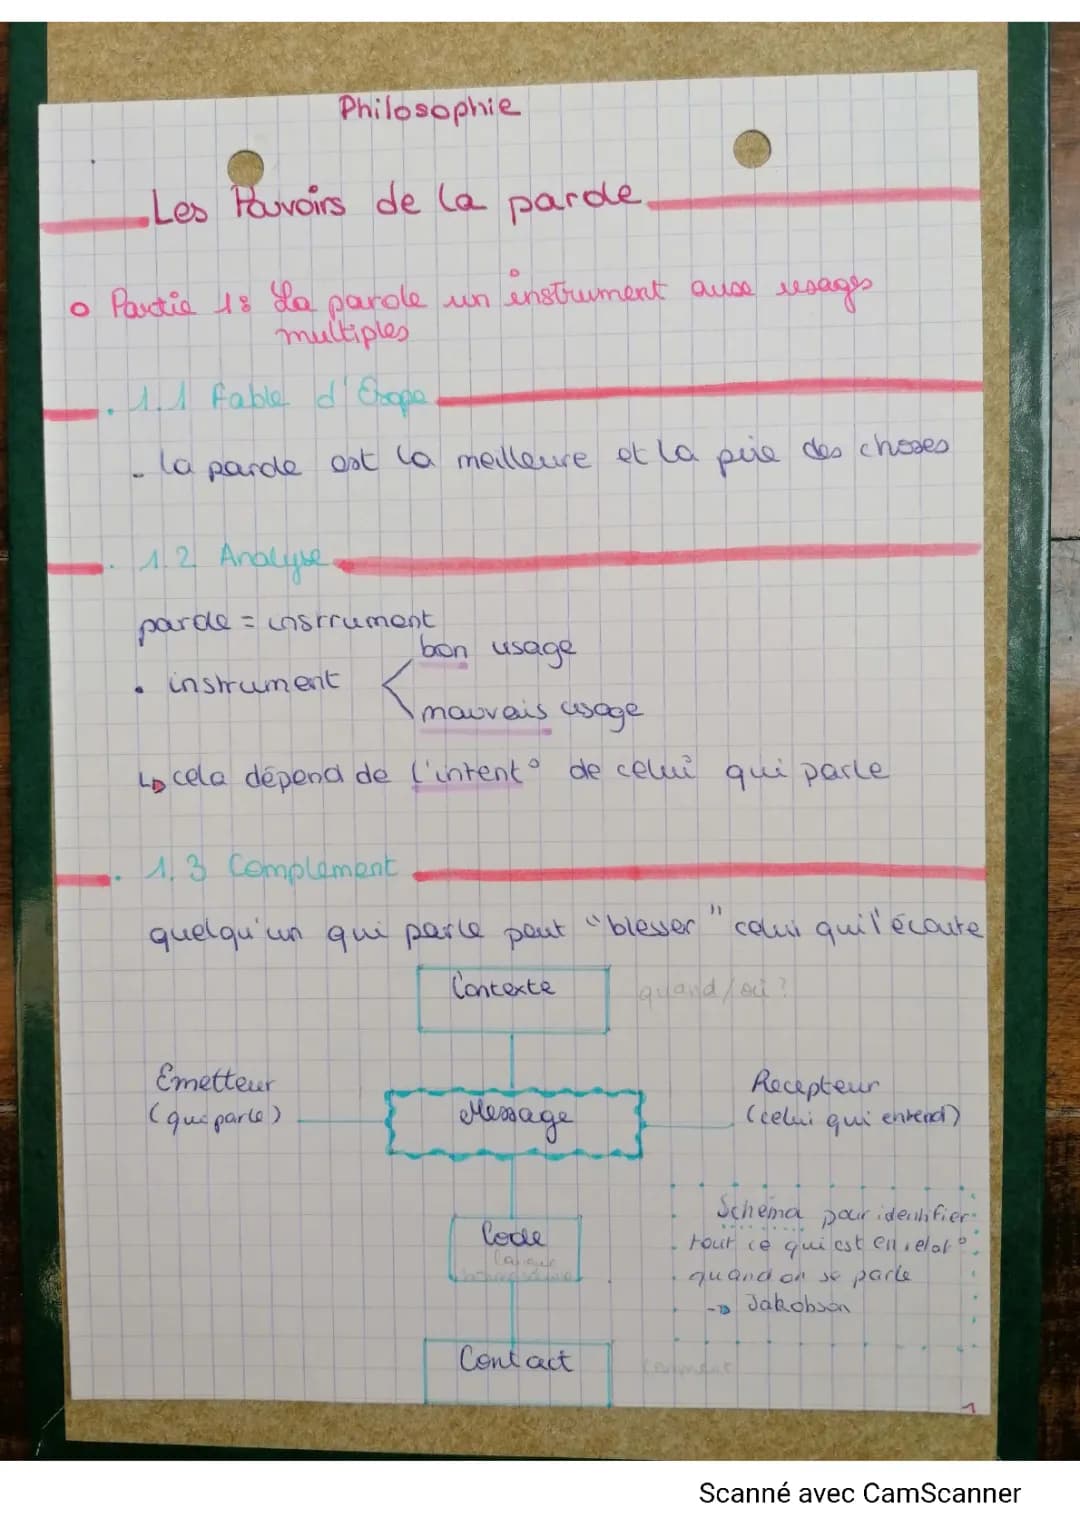 Philosophie
Les Pouvoirs de la parole
Partie 1: La parole un instrument aux usages
multiples
1.1 Fable d'Esope
- la parole est la meilleure et la pire des choses
1.2 Analyse
parole = instrument
bon usage
• instrument
mauvais usage
↳ cela dépend de l'intent° de celui qui parle
1.3 Complément
quelqu'un qui parle peut "blesser" celui qui l'écoute
Contexte quand/où ?
Emetteur
(qui parle)
Message
Recepteur
(celui qui entend)
Code
Langue
Schéma pour identifier
tout ce qui est en relat°
quand on se parle
→ Jakobson
Contact comment
1
Scanné avec CamScanner